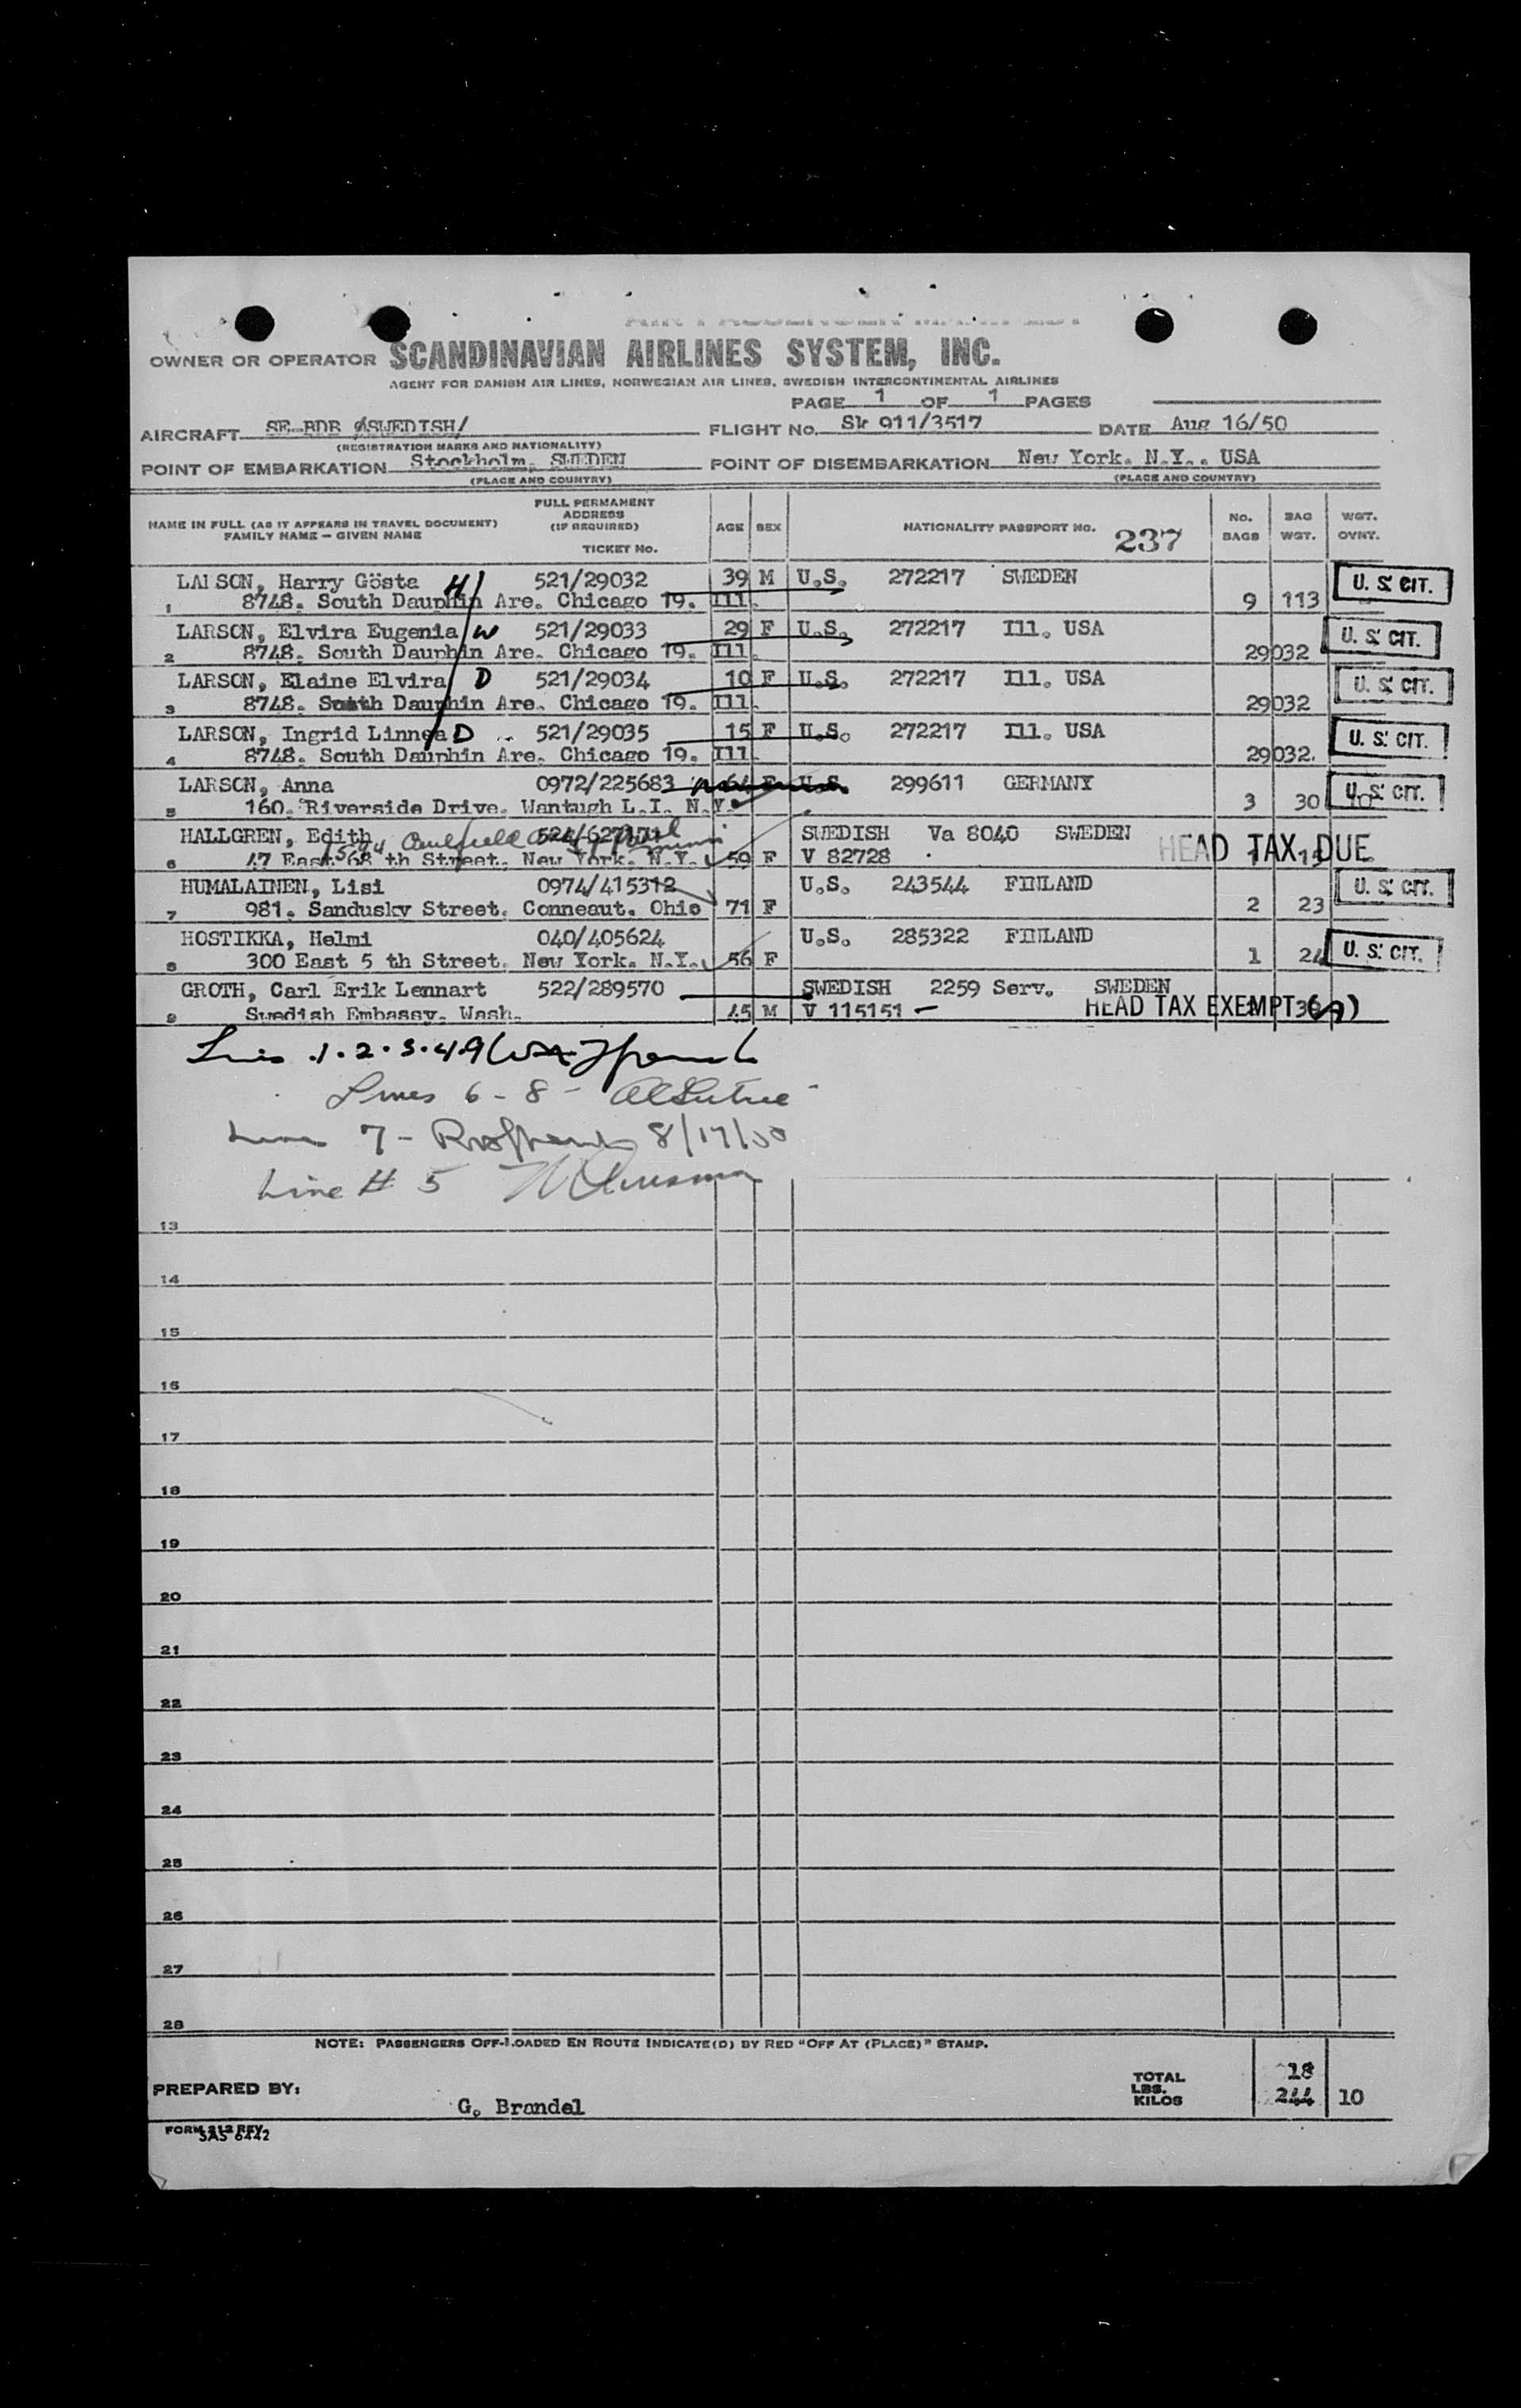 OWNER OR OPERATOR SCANDINAVIAN AIRLINES SYSTEM, INC.
AGENT FOR DANISH AIR LINES, NORWEGIAN AIR LINES, SWEDISH INTERCONTINENTAL AIRLINES
PAGE 1 OF 1 PAGES
AIRCRAFT SE-BDB (SWEDISH/ FLIGHT NO. Sk 911/3517 DATE Aug 16/50
(REGISTRATION MARKS AND NATIONALITY)
POINT OF EMBARKATION Stockholm, SWEDEN POINT OF DISEMBARKATION New York. N.Y.. USA
(PLACE AND COUNTRY) (PLACE AND COUNTRY)
NAME IN FULL (AS IT APPEARS IN TRAVEL DOCUMENT) FAMILY NAME - GIVEN NAME FULL PERMANENT ADDRESS (IF REQUIRED) TICKET NO. AGE SEX NATIONALITY PASSPORT NO. 237 NO. BAGS BAG WGT. WGT. OVNT.
LARSON, Harry Gösta H 521/29032 39 M U.S. 272217 SWEDEN U.S. CIT.
1 8748. South Dauphin Are. Chicago 19. Ill. 9 113
LARSON, Elvira Eugenia W 521/29033 29 F U.S. 272217 Ill. USA U.S. CIT.
2 8748. South Dauphin Are. Chicago 19. Ill. 29032
LARSON, Elaine Elvira D 521/29034 10 F U.S. 272217 Ill. USA U.S. CIT.
3 8748. South Dauphin Are. Chicago 19. Ill. 29032
LARSON, Ingrid Linnea D 521/29035 15 F U.S. 272217 Ill. USA U.S. CIT.
4 8748. South Dauphin Are. Chicago 19. Ill. 29032.
LARSON, Anna 0972/225683 64 F U.S. 299611 GERMANY U.S. CIT.
5 160. Riverside Drive. Wantugh L.I. N.Y. 3 30 10
HALLGREN, Edith SWEDISH Va 8040 SWEDEN HEAD TAX DUE
6 47 East 68 th Street. New York. N.Y. 59 F V 82728 1 15
HUMALAINEN, Lisi 0974/415312 U.S. 243544 FINLAND U.S. CIT.
7 981. Sandusky Street. Conneaut. Ohio 71 F 2 23
HOSTIKKA, Helmi 040/405624 U.S. 285322 FINLAND U.S. CIT.
8 300 East 5 th Street. New York. N.Y. 56 F 1 24
GROTH, Carl Erik Lennart 522/289570 SWEDISH 2259 Serv. SWEDEN
9 Swedish Embassy. Wash. 45 M V 115151 HEAD TAX EXEMPT
Lines 1.2.3.4.9
Lines 6-8
Line 7 - 8/17/50
Line # 5
13
14
15
16
17
18
19
20
21
22
23
24
25
26
27
28
NOTE: PASSENGERS OFF-LOADED EN ROUTE INDICATE(D) BY RED "OFF AT (PLACE)" STAMP.
PREPARED BY: G. Brandel TOTAL LBS. KILOS 18 244 10
FORM 212 REV.
SAS 6442